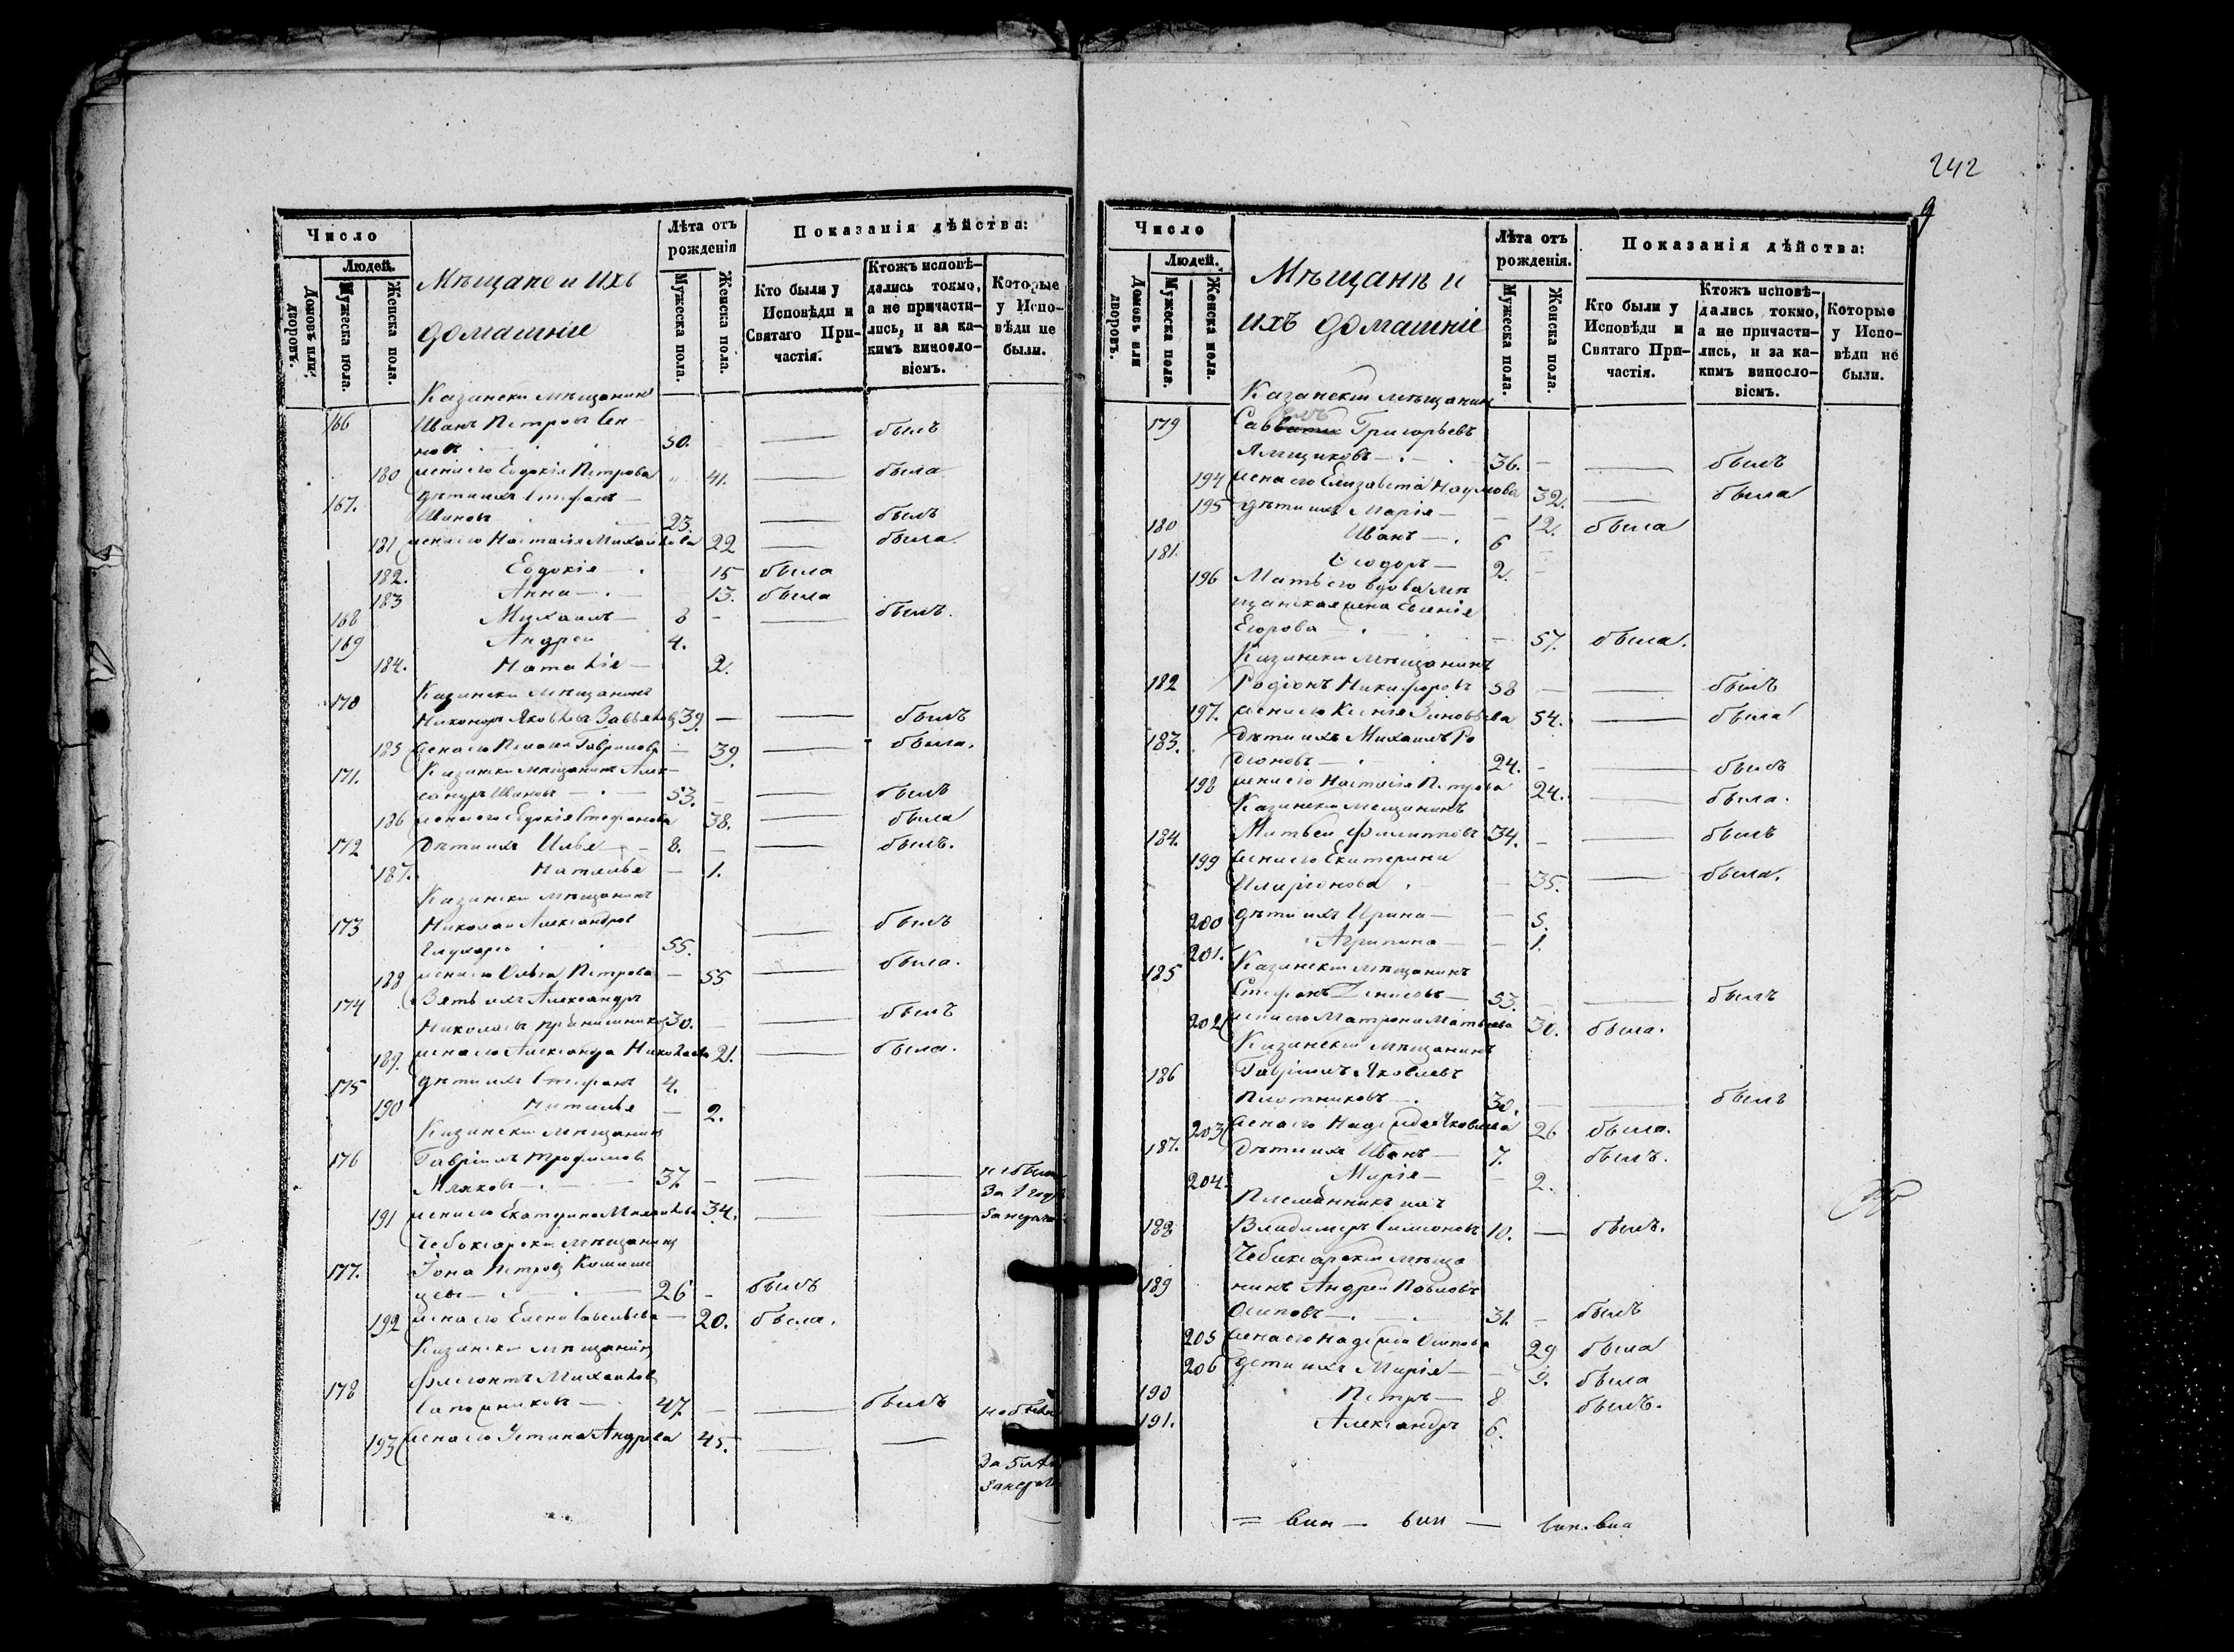 242
9
Число
Людей.
Домовъ или дворовъ.
Мужеска пола.
Женска пола.
Мѣщане и ихъ
домашніе
Лѣта отъ рожденія
Мужеска пола.
Женска пола.
Показанія дѣйства:
Кто были у Исповѣди и Святаго Причастія.
Ктожъ исповѣдались токмо, а не причастились, и за какимъ винословіемъ.
Которые у Исповѣди не были.
Казански мѣщанинъ
166 Иванъ Петровъ
50. — былъ
180 жена его Евдокія Петрова 41. — была
167. дѣти ихъ Стефанъ
Ивановъ 23. — былъ
181 жена его Настасія Михайлова 22 — была.
182. Евдокія — 15 была
183 Анна — 13. была
168 Михаилъ — 8 — былъ.
169 Андрей 4.
184. Наталія — 2.
Казански мѣщанинъ
170 Никоноръ Яковлевъ 39. — былъ
185 жена его Гаврилова 39. — была.
171. Казански мѣщанинъ Алек-
сандръ Ивановъ — 53. — былъ
186 жена его Евдокія Стефанова 38. — была
172 Дѣти ихъ Илья — 8. — былъ.
187. Наталья — 1.
Казански мѣщанинъ
173 Николай Александровъ — былъ
55.
188 жена его Ольга Петрова — 55 — была.
174 Зять ихъ Александръ
Николаевъ 30. — былъ
189. жена его Александра Николаева 21. — была.
175 дѣти ихъ Стефанъ 4.
190 Наталья — 2.
Казански мѣщанинъ
176 Гавріилъ Трофимовъ
37. — —
191 жена его Екатерина Михайлова 34. — —
Чебоксарски мѣщанинъ
177. Іона Петровъ
26 — былъ
192 жена его Елена Савельева — 20. была.
Казански мѣщанинъ
178 Флегонтъ Михайловъ
Сапожниковъ — 47. — былъ
193 жена его Устина Андреева 45. — —
Число
Людей.
Домовъ или дворовъ.
Мужеска пола.
Женска пола.
Мѣщане и
ихъ домашніе
Лѣта отъ рожденія.
Мужеска пола.
Женска пола.
Показанія дѣйства:
Кто были у Исповѣди и Святаго Причастія.
Ктожъ исповѣдались токмо, а не причастились, и за какимъ винословіемъ.
Которые у Исповѣди не были.
Казанскій мѣщанинъ
179 Григорьевъ
Ямщиковъ — 36. — былъ
194 жена его Елизавета Наумова 32. — была
195 дѣти ихъ Марія — 12. была
180 Иванъ — 6
181. Ѳеодоръ — 2.
196 Мать его вдова мѣ-
щанская жена Евгенія
Егорова — 57. была.
Казански мѣщанинъ
182 Родіонъ Никифоровъ 58 — былъ
197. жена его Ксенія Зиновьева 54. — была
183. Дѣти ихъ Михаилъ Ро
діоновъ — 24. — былъ
198 жена его Настасія Петрова 24. — была.
Казански мещанинъ
184. Матвѣй Филипповъ 34. — былъ
199 жена его Екатерина
Иларіонова — 35. — была.
200 дѣти ихъ Ирина — 5.
201. Агрипина — 1.
Казанскій мѣщанинъ
185 Стефанъ Денисовъ — 53. — былъ
202 жена его Матрона Матвѣева 30. была.
Казанскій мѣщанинъ
186 Гавріилъ Яковлевъ
Плотниковъ — 30. — былъ
203 жена его Надежда Яковлева 26 была.
187. Дѣти ихъ Иванъ — 7. былъ.
204. Марія — 2.
Племянникъ ихъ
188 Владимеръ Симоновъ 10. — былъ.
Чебоксарскій мѣща
189 нинъ Андрей Павловъ
Осиповъ — 31. — былъ
205 жена его Надежда Осипова 29 была
206 дети ихъ Марія — 9. была
190 Петръ — 8 былъ.
191. Александръ 6.